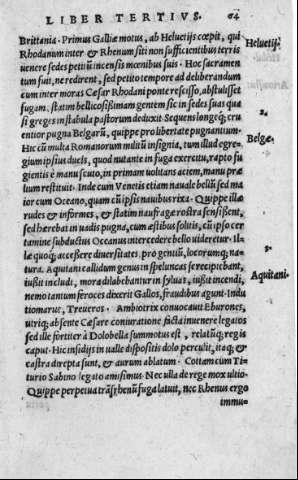 LIBER TERTIVS. 64
Brittania. Primus Galliæ motus, ab Heluetijs cœpit, qui
Rhodanum inter & Rhenum siti non sufficientibus terris
Heluetij.
venere sedes petitũ incensis mœnibus suis. Hoc sacramen
tum fuit, ne redirent, sed petito tempore ad deliberandum
cum inter moras Cæsar Rhodani ponte rescisso, abstulisset
fugam, statim bellicosissimam gentem sic in sedes suas qua
si greges in stabula pastorum deduxit. Sequens longeq; cru
2.
entior pugna Belgarũ, quippe pro libertate pugnantium.
Belgæ.
Hic cũ multa Romanorum militũ insignia, tum illud egre=
gium ipsius ducis, quod nutante in fuga exercitu, rapto fu
gientis è manu scuto, in primam volitans aciem, manu præ
lium restituit. Inde cum Venetis etiam nauale bellũ, sed ma
ior cum Oceano, quam cũ ipsis nauibus rixa. Quippe illæ
rudes & informes, & statim naufragæ rostra sensissent,
sed hærebat in vadis pugna, cum æstibus solitis, cũ ipso cer
tamine subductus Oceanus intercedere bello uideretur. Il=
3.
læ quoq; accessere diuersitates pro genuũ, locorumq; na=
tura. Aquitani callidum genus in speluncas se recipiebant,
Aquitani.
iussit includi, mora dilabebantur in syluas, iussit incendi,
nemo tantum feroces dixerit Gallos, fraudibus agunt. Indu
tiomarus, Treueros. Ambiotrix conuocauit Eburones,
utriq; ab sente Cæsare coniuratione facta inuenere legatos
sed ille fortiter à Dolobella summotus est, relatũq; regis
caput. Hic insidijs in ualle dispositis dolo perculit, itaq; &
castra direpta sunt, & aurum ablatum. Cottam cum Ti=
turio Sabino legato amisimus. Nec ulla de rege mox ultio.
Quippe perpetua trãs rhenũ fuga latuit, nec Rhenus ergo
immu=